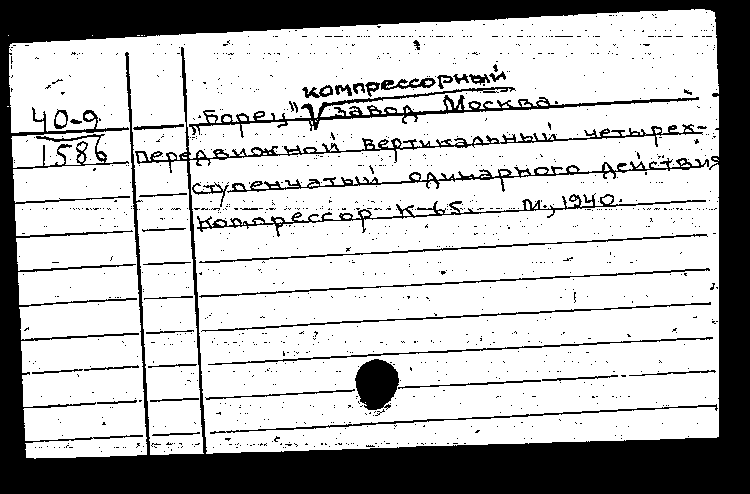 компрессорный
40-9
"Борец" V завод Москва.
1586
Передвижной вертикальный четырех-
ступенчатый одинарного действия
компрессор К-65. М., 1940.